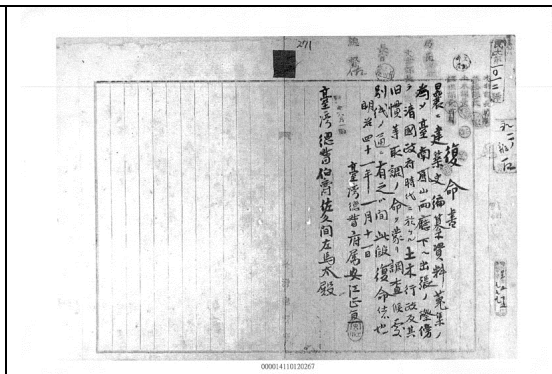 271
復命書
曩ニ建築史編纂資料蒐集ノ
為メ臺南鳳山両廳下ヘ出張ノ際傍
ラ清國政府時代ニ於ケル土木行政及其
旧慣等取調ノ命ヲ蒙リ調査候處
別伐ノ通ニ有之候間此段復命候也
明治四十一年一月十一日
臺湾總督府属安江正直
臺湾總督伯爵佐久間左馬太殿
000014110120267